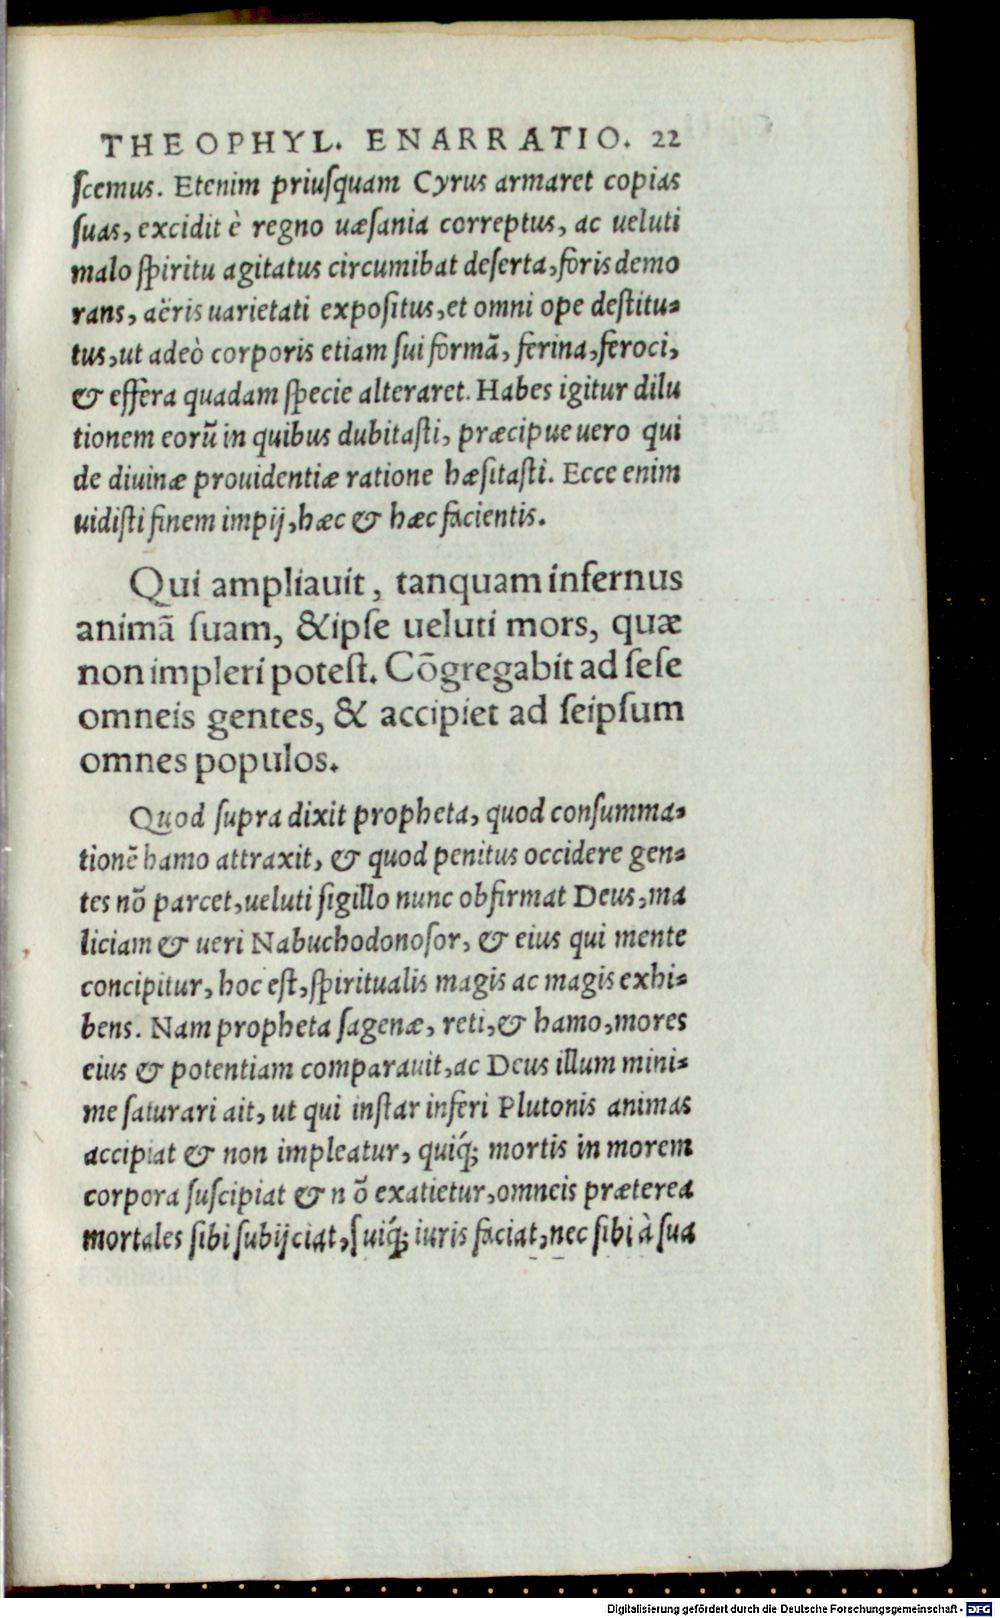 THEOPHYL. ENARRATIO. 22
ſcemus. Etenim priuſquam Cyrus armaret copias
ſuas, excidit è regno uæſania correptus, ac ueluti
malo ſpiritu agitatus circumibat deſerta, foris demo
rans, aëris uarietati expoſitus, et omni ope deſtitu-
tus, ut adeò corporis etiam ſui formā, ferina, feroci,
& effera quadam ſpecie alteraret. Habes igitur dilu
tionem eorū in quibus dubitaſti, præcipue uero qui
de diuinæ prouidentiæ ratione hæſitaſti. Ecce enim
uidiſti finem impij, hæc & hæc facientis.
Qui ampliauit, tanquam infernus
animā ſuam, & ipſe ueluti mors, quæ
non impleri poteſt. Cōgregabit ad ſeſe
omneis gentes, & accipiet ad ſeipſum
omnes populos.
Quod ſupra dixit propheta, quod conſumma-
tionē hamo attraxit, & quod penitus occidere gen-
tes nō parcet, ueluti ſigillo nunc obfirmat Deus, ma
liciam & ueri Nabuchodonoſor, & eius qui mente
concipitur, hoc eſt, ſpiritualis magis ac magis exhi-
bens. Nam propheta ſagenæ, reti, & hamo, mores
eius & potentiam comparauit, ac Deus illum mini-
me ſaturari ait, ut qui inſtar inferi Plutonis animas
accipiat & non impleatur, quiq́; mortis in morem
corpora ſuſcipiat & nō exatietur, omneis præterea
mortales ſibi ſubijciat, ſuiq́; iuris faciat, nec ſibi à ſua
Digitalisierung gefördert durch die Deutsche Forschungsgemeinschaft - DFG